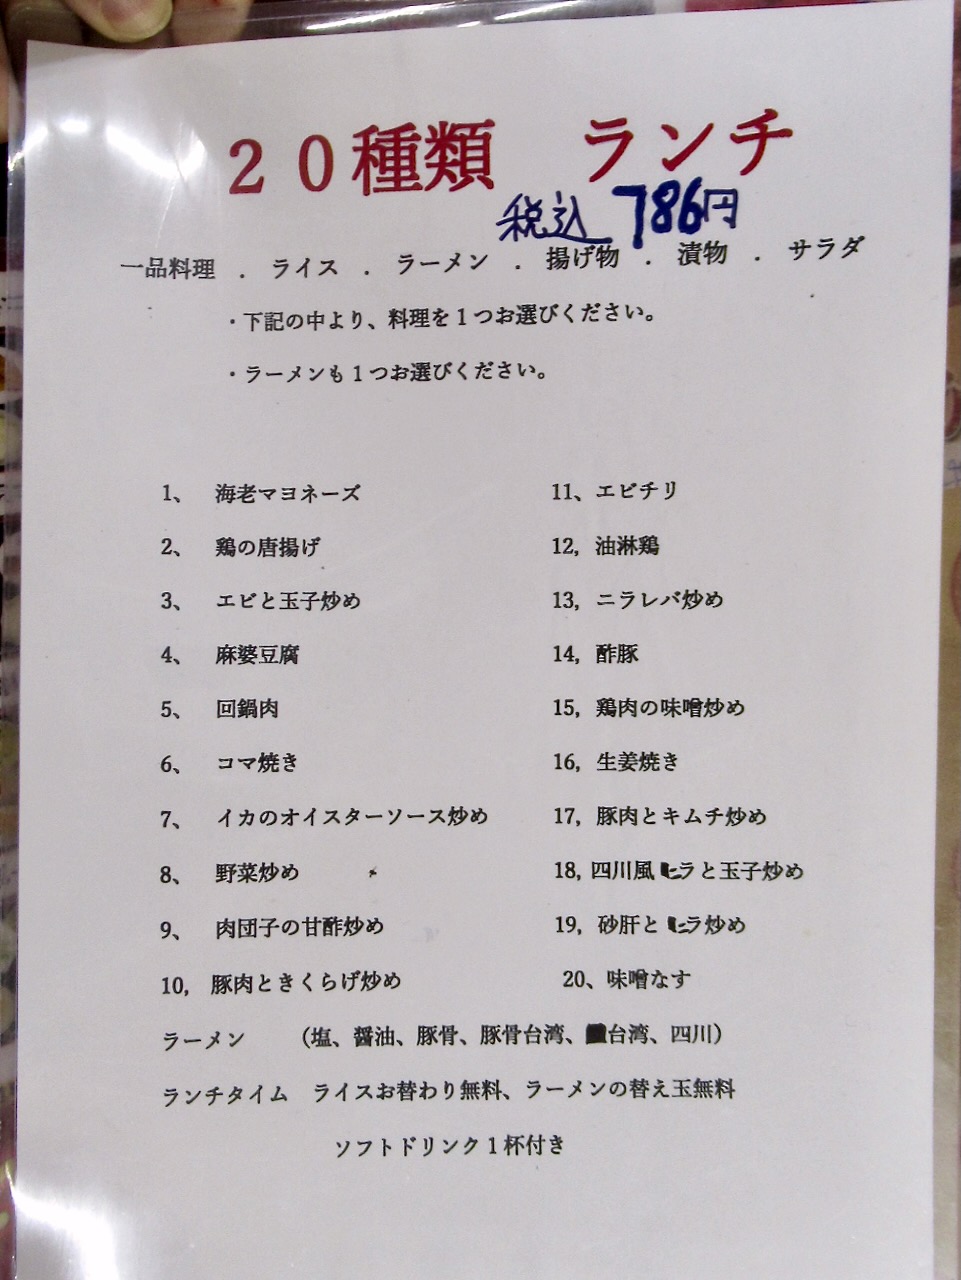 20種類　ランチ
税込 786円
一品料理 . ライス . ラーメン . 揚げ物 . 漬物 . サラダ
・下記の中より、料理を1つお選びください。
・ラーメンも1つお選びください。
1、 海老マヨネーズ
2、 鶏の唐揚げ
3、 エビと玉子炒め
4、 麻婆豆腐
5、 回鍋肉
6、 コマ焼き
7、 イカのオイスターソース炒め
8、 野菜炒め
9、 肉団子の甘酢炒め
10, 豚肉ときくらげ炒め
11、エビチリ
12, 油淋鶏
13, ニラレバ炒め
14, 酢豚
15, 鶏肉の味噌炒め
16, 生姜焼き
17, 豚肉とキムチ炒め
18, 四川風ヒラと玉子炒め
19, 砂肝とヒラ炒め
20、味噌なす
ラーメン　（塩、醤油、豚骨、豚骨台湾、台湾、四川）
ランチタイム　ライスお替わり無料、ラーメンの替え玉無料
ソフトドリンク1杯付き